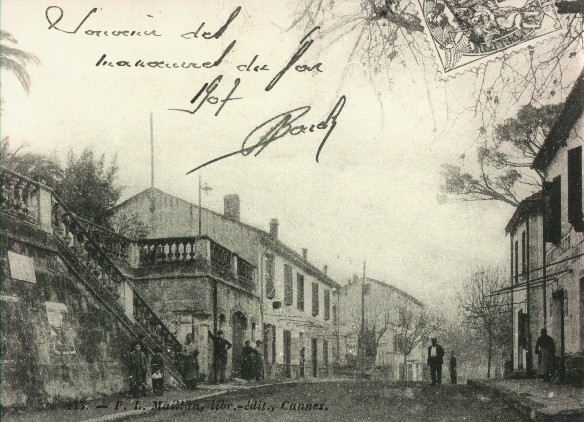 Souvenir del
manœuvrel du Var
907
233. - P. L. Maillan, libr.-édit., Cannes.